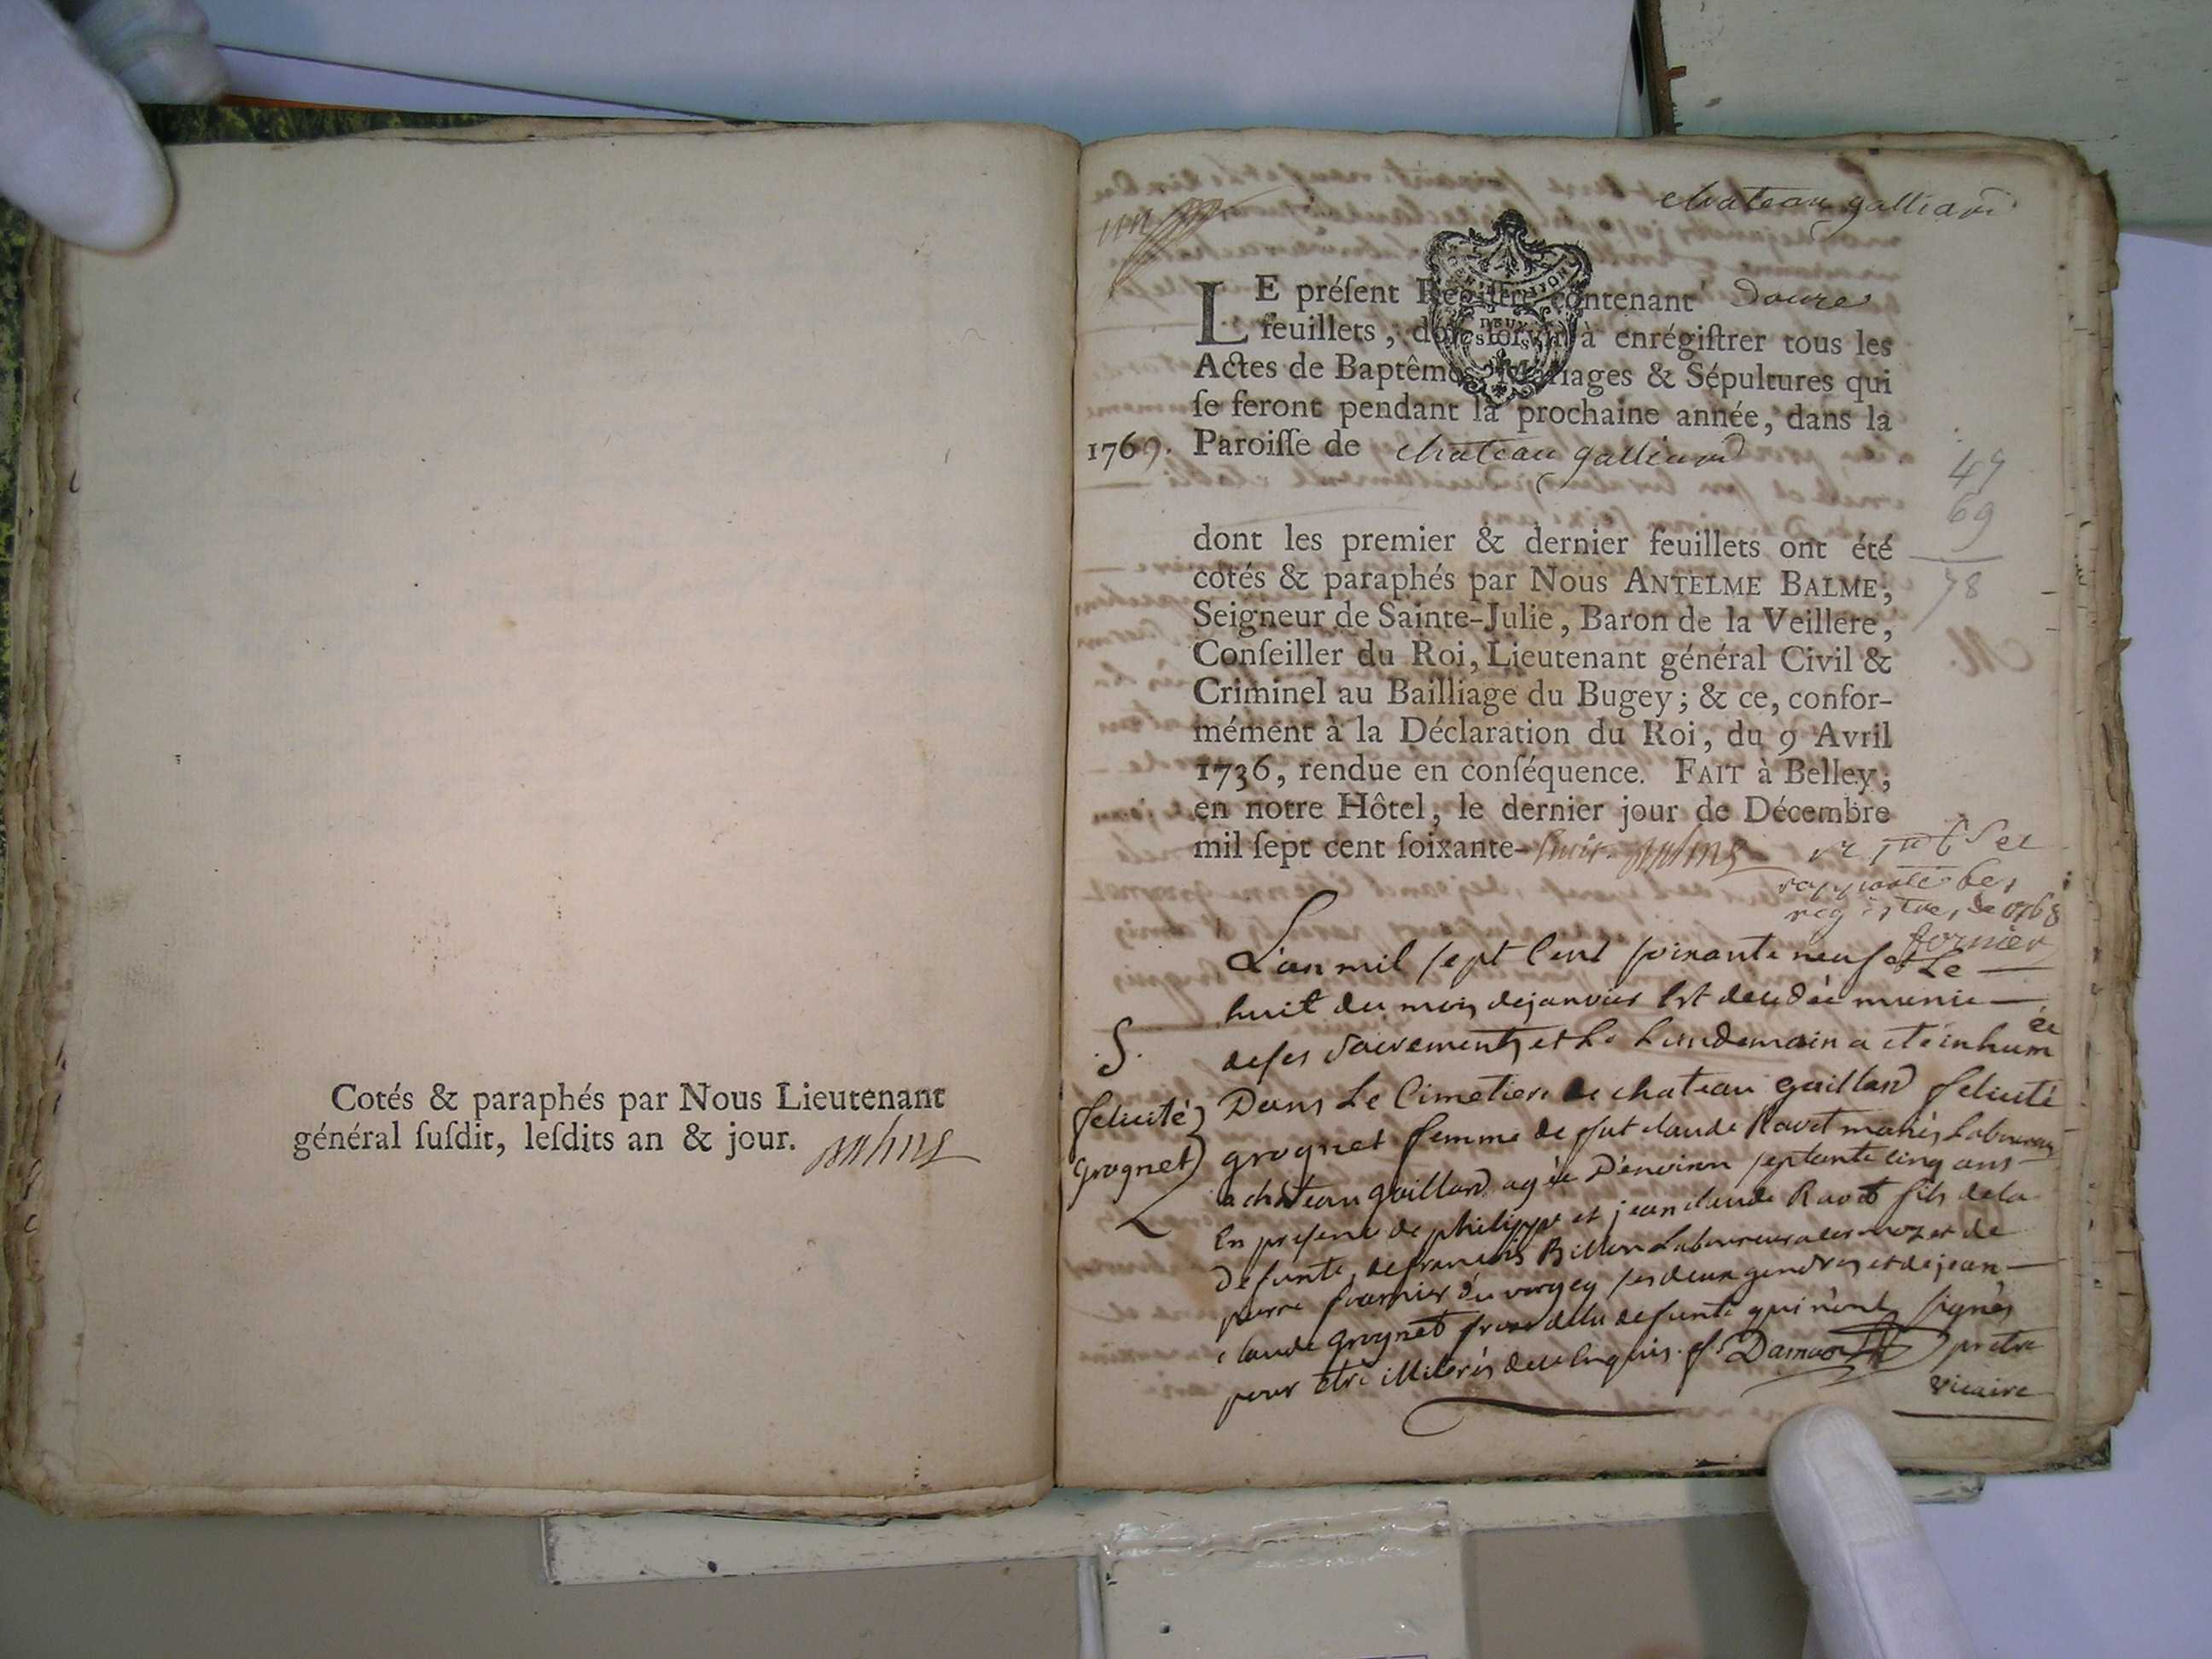 Cotés & paraphés par Nous Lieutenant
général ſuſdit, leſdits an & jour.
chateau galliard
LE préſent Regiſtre contenant Douze
feuillets, à enrégiſtrer tous les
Actes de Baptêmes, Mariages & Sépultures qui
ſe feront pendant la prochaine année, dans la
1769. Paroiſſe de chateau galliard
47
69
78
dont les premier & dernier feuillets ont été
cotés & paraphés par Nous ANTELME BALME,
Seigneur de Sainte-Julie, Baron de la Veillere,
Conſeiller du Roi, Lieutenant général Civil &
Criminel au Bailliage du Bugey; & ce, confor-
mément à la Déclaration du Roi, du 9 Avril
1736, rendue en conſéquence. FAIT à Belley,
en notre Hôtel, le dernier jour de Décembre
mil ſept cent ſoixante-huit.
rapporté les
registres de 1768
fornier
L'an mil sept Cent soixante neuf et Le
huit du mois dejanvier Est decedée munie
deses sacrements et Le Lendemain a eté inhumée
.S.
felicité
grognet
Dans Le Cimetiere de chateau gaillard felicité
grognet femme de fut claude Ravet mariés Laboureur
a chateau gaillard agée D'environ septante cinq ans
En presence de philippe et jean claude Ravet fils dela
Defunte, defrancois Billon Laboureur et de
pierre fournier du vorgey ses deux gendres et dejean
claude grognet frere dela defunte qui n'ont signés
pour etre illiterés de ce Enquis. Damas prêtre
vicaire